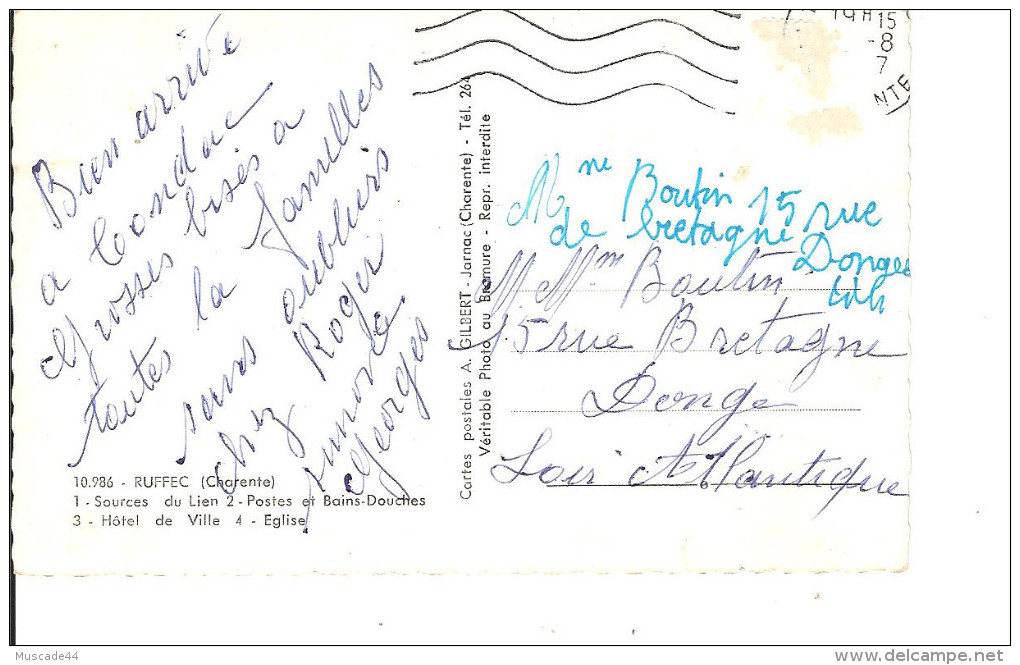 Bien arrivé
a Condac
Grosses bises a
toutes la familles
sans oubliers
chez Roger
Simone
Georges
10.986 - RUFFEC (Charente)
1 - Sources du Lien 2 - Postes et Bains-Douches
3 - Hôtel de Ville 4 - Eglise
Cartes postales A. GILBERT - Jarnac (Charente) - Tél. 264
Véritable Photo au Bromure - Repr. interdite
19H15
-8
7
NTE
Mme Boutin 15 rue
de bretagne Donges
M Mm Boutin
15 rue Bretagne
Donge
Loir Atlantique
Muscade44
http://www.delcampe.net